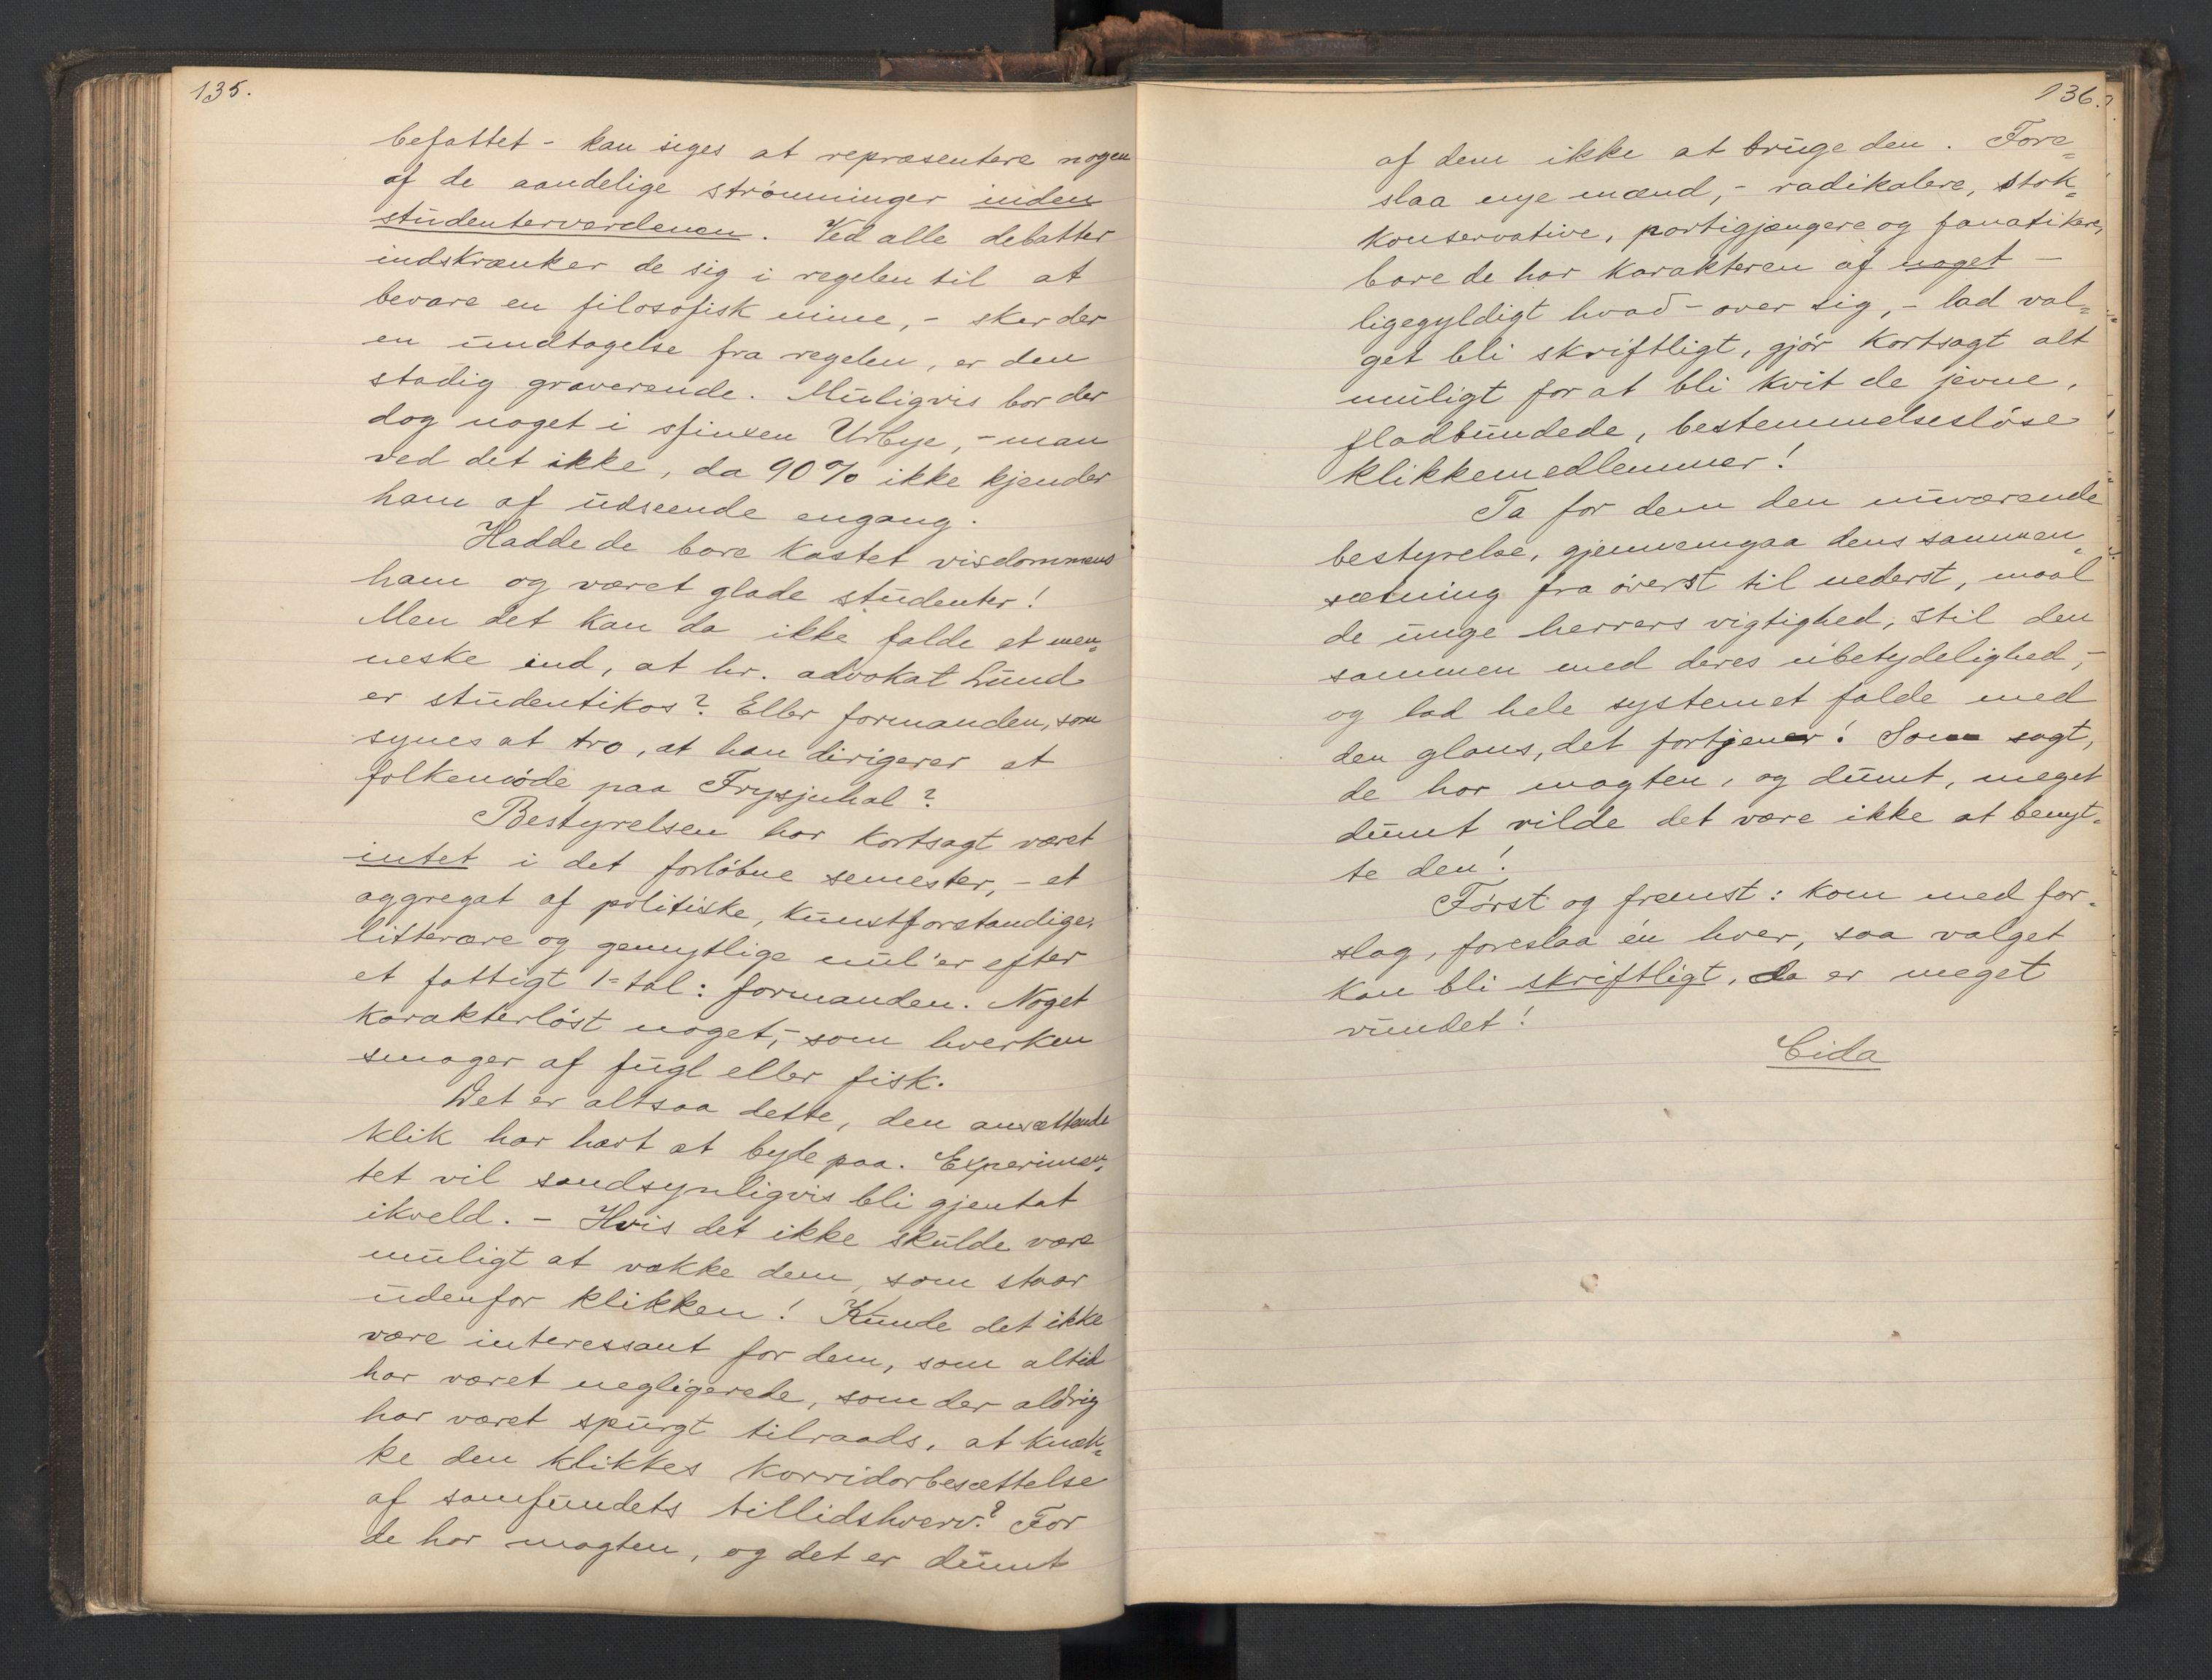 135.
befattet - kan siges at repræsentere nogen
af de aandelige strömninger inden
studenterverdenen. Ved alle debatter
indskrænker de sig i regelen til at
bevare en filosofisk mine, - sker der
en undtagelse fra regelen, er den
stadig graverende. Muligvis bor der
dog noget i sfinxen Urbye, - man
ved det ikke, da 90% ikke kjender
ham af udseende engang.
Hadde de bare kastet visdommens
ham og været glade studenter!
Men det kan da ikke falde et men=
neske ind, at hr. advokat Lund
er studentikos? Eller formanden, som
synes at tro, at han dirigerer et
folkemöde paa Frysjuhal?
Bestyrelsen har kortsagt været
intet i det forløbne semester, - et
aggregat af politiske, kunstforstandige,
litterære og gemytlige nul'er efter
et fattigt 1-tal: formanden. Noget
karakterlöst noget, - som hverken
smager af fugl eller fisk.
Det er altsaa dette, den ansættende
klik har hart at byde paa. Experimen=
tet vil sandsynligvis bli gjentat
ikveld. - Hvis det ikke skulde være
muligt at vække dem, som staar
udenfor klikken! Kunde det ikke
være interessant for dem, som altid
har været negligerede, som der aldrig
har været spurgt tilraads, at knæk=
ke den klikkes korridorbesættelse
af samfundets tillidshverv? For
de har magten, og det er dumt
136.
af dem ikke at bruge den. Fore=
slaa nye mænd, - radikalere, stok=
konservative, partigjængere og fanatikere,
bare de har karakteren af noget -
ligegyldigt hvad - over sig, - lad val=
get bli skriftligt, gjör kortsagt alt
muligt for at bli kvit de jevne,
fladbundede, bestemmelseslöse
klikkemedlemmer!
Ta for dem den nuværende
bestyrelse, gjennemgaa dens sammen=
sætning fra överst til nederst, maal
de unge herrers vigtighed, stil den
sammen med deres ubetydelighed, -
og lad hele systemet falde med
den glans, det fortjener! Som sagt,
de har magten, og dumt, meget
dumt vilde det være ikke at benyt=
te den!
Först og fremst: kom med for=
slag, foreslaa én hver, saa valget
kan bli skriftligt, da er meget
vundet!
Cida